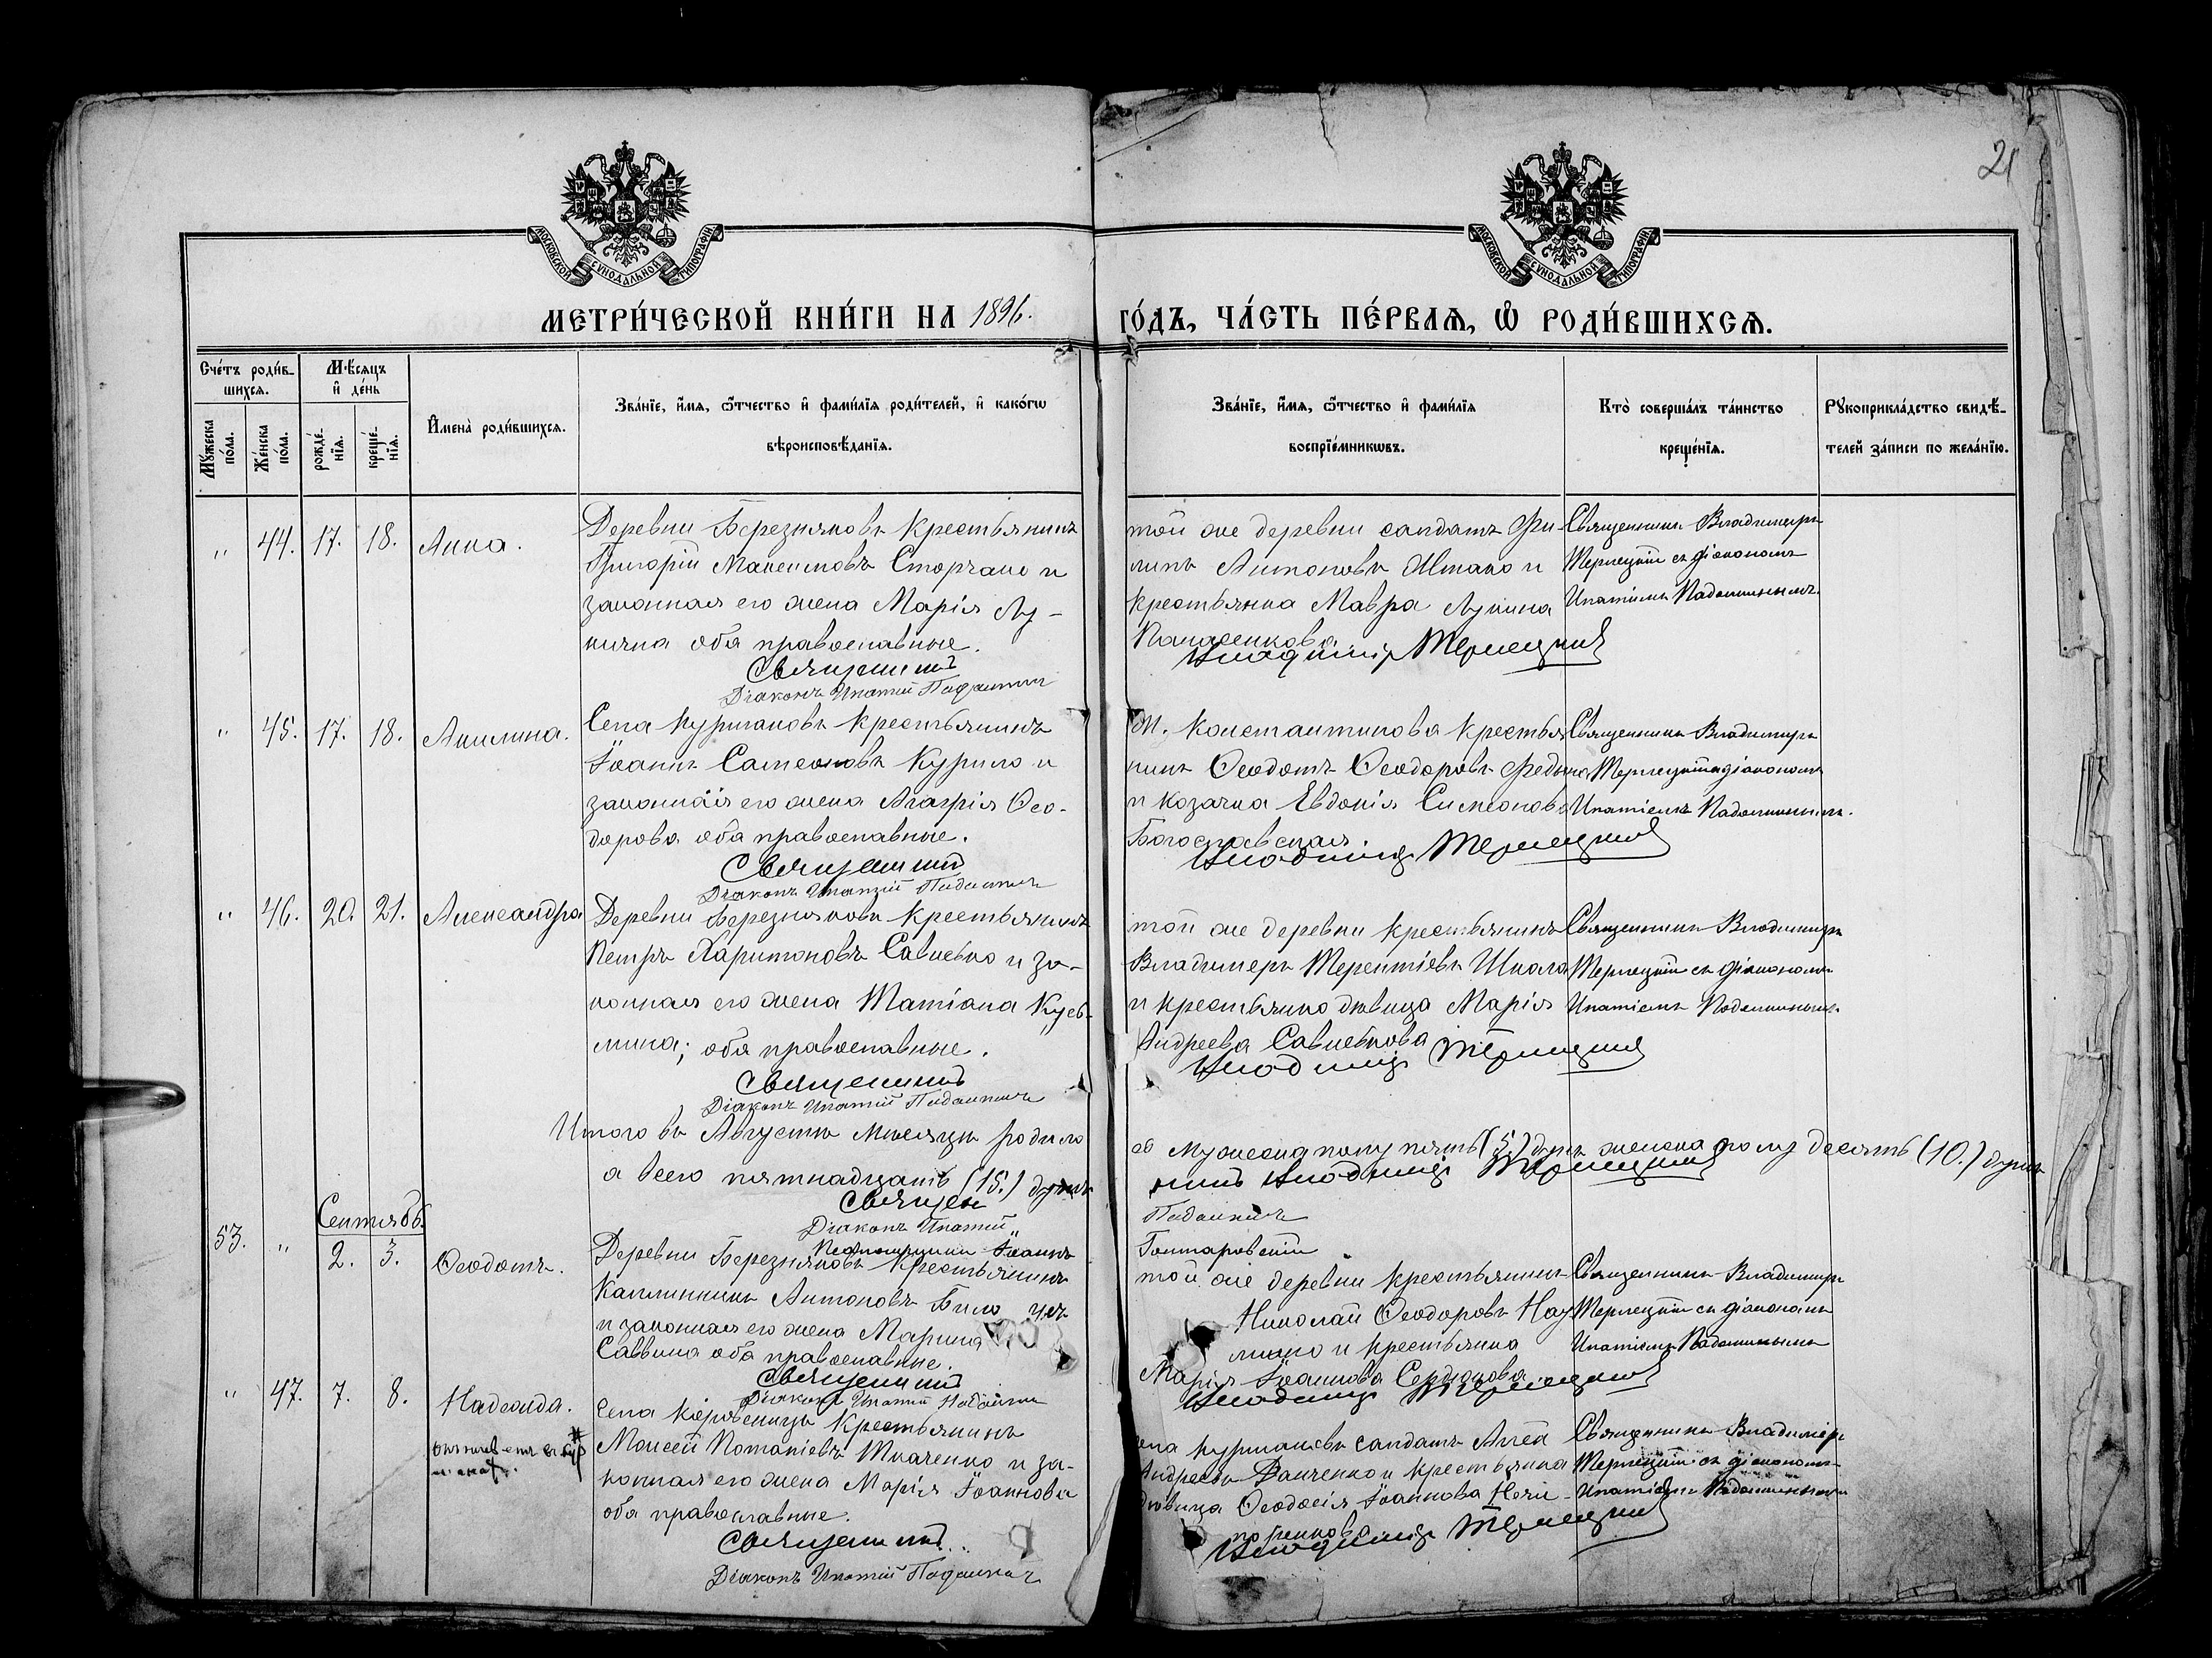 21
МОСКОВСКОЙ СУНОДАЛЬНОЙ ТИПОГРАФІИ
МОСКОВСКОЙ СУНОДАЛЬНОЙ ТИПОГРАФІИ
МЕТРИ́ЧЕСКОЙ КНИ́ГИ НА 1896.
ГО́ДЪ, ЧА́СТЬ ПЕ́РВАѦ, Ѽ РОДИ́ВШИХСѦ.
Сче́тъ роди́в-
шихсѧ.
Мꙋ́жеска
по́ла.
Же́нска
по́ла.
Мѣ́сѧцъ
и҆ де́нь
рожде́-
нїѧ.
креще́-
нїѧ.
И҆мена̀ роди́вшихсѧ.
Зва́нїе, и҆́мѧ, ѻ҆́тчество и҆ фами́лїѧ роди́телей, и҆ како́гѡ
вѣроисповѣ́данїѧ.
Зва́нїе, и҆́мѧ, ѻ҆́тчество и҆ фами́лїѧ
воспрїе́мникѡвъ.
Кто̀ соверша́лъ та́инство
креще́нїѧ.
Рꙋкоприкла́дство свидѣ́-
телей за́писи по жела́нїю.
" 44. 17. 18. Анна.
Деревни Березняковъ крестьянинъ
Григорій Максимовъ Сторчано и
законная его жена Марія Лу-
кична оба православные.
Священникъ
Діаконъ Ипатій
той же деревни солдатъ Фи-
липъ Антоновъ и
крестьянка Мавра Лукина
Владиміръ Терлецкій
Священникъ Владимиръ
Терлецкій съ діакономъ
Ипатіемъ
" 45. 17. 18. Акилина.
Села Курмановъ крестьянинъ
Іоаннъ Самсоновъ Курило и
законная его жена Агафія Ѳео-
дорова оба православные.
Священникъ
Діаконъ Ипатій
М. Константинова крестья
нинъ Ѳеодотъ Ѳеодоровъ
и козачка Евдокія Симеонова
Богославская
Владиміръ Терлецкій
Священникъ Владимиръ
Терлецкій съ діакономъ
Ипатіемъ
" 46. 20. 21. Александра
Деревни Березняковъ крестьянинъ
Петръ Харитоновъ Савченко и за-
конная его жена Татіана Кузь-
мина; оба православные.
Священникъ
Діаконъ Ипатій
той же деревни крестьянинъ
Владимеръ Терентіевъ Шкала
и крестьянка девица Марія
Андреева
Владиміръ Терлецкій
Священникъ Владимиръ
Терлецкій съ діакономъ
Ипатіемъ
Итого въ Августѣ мѣсяцѣ родило
съ мужеска полу пять (5) душъ женска полу десять (10.) душъ
а всего пятнадцать (15.) душъ
Священ
никъ Владиміръ Терлецкій
Діаконъ Ипатій
Псаломщикъ Іоаннъ
Гонтаровскій
Сентябр.
53. " 2. 3. Ѳеодотъ.
Деревни Березняковъ крестьянинъ
Антоновъ
и законная его жена Марина
Саввина оба православные.
Священникъ
Діаконъ Ипатій
той же деревни крестьянинъ
Николай Ѳеодоровъ Нау
менко и крестьянка
Марія Іоаннова Сердюкова
Владиміръ Терлецкій
Священникъ Владимиръ
Терлецкій съ діакономъ
Ипатіемъ
" 47. 7. 8. Надежда.
Села крестьянинъ
Моисей Потапіевъ Ткаченко и за-
конная его жена Марія Іоаннова
оба православные.
Священникъ
Діаконъ Ипатій
села Курмановъ солдатъ
Андреевъ и крестьянка
девица Ѳеодосія Іоаннова Нечи-
поренкова
Владиміръ Терлецкій
Священникъ Владиміръ
Терлецкій съ діакономъ
Ипатіемъ